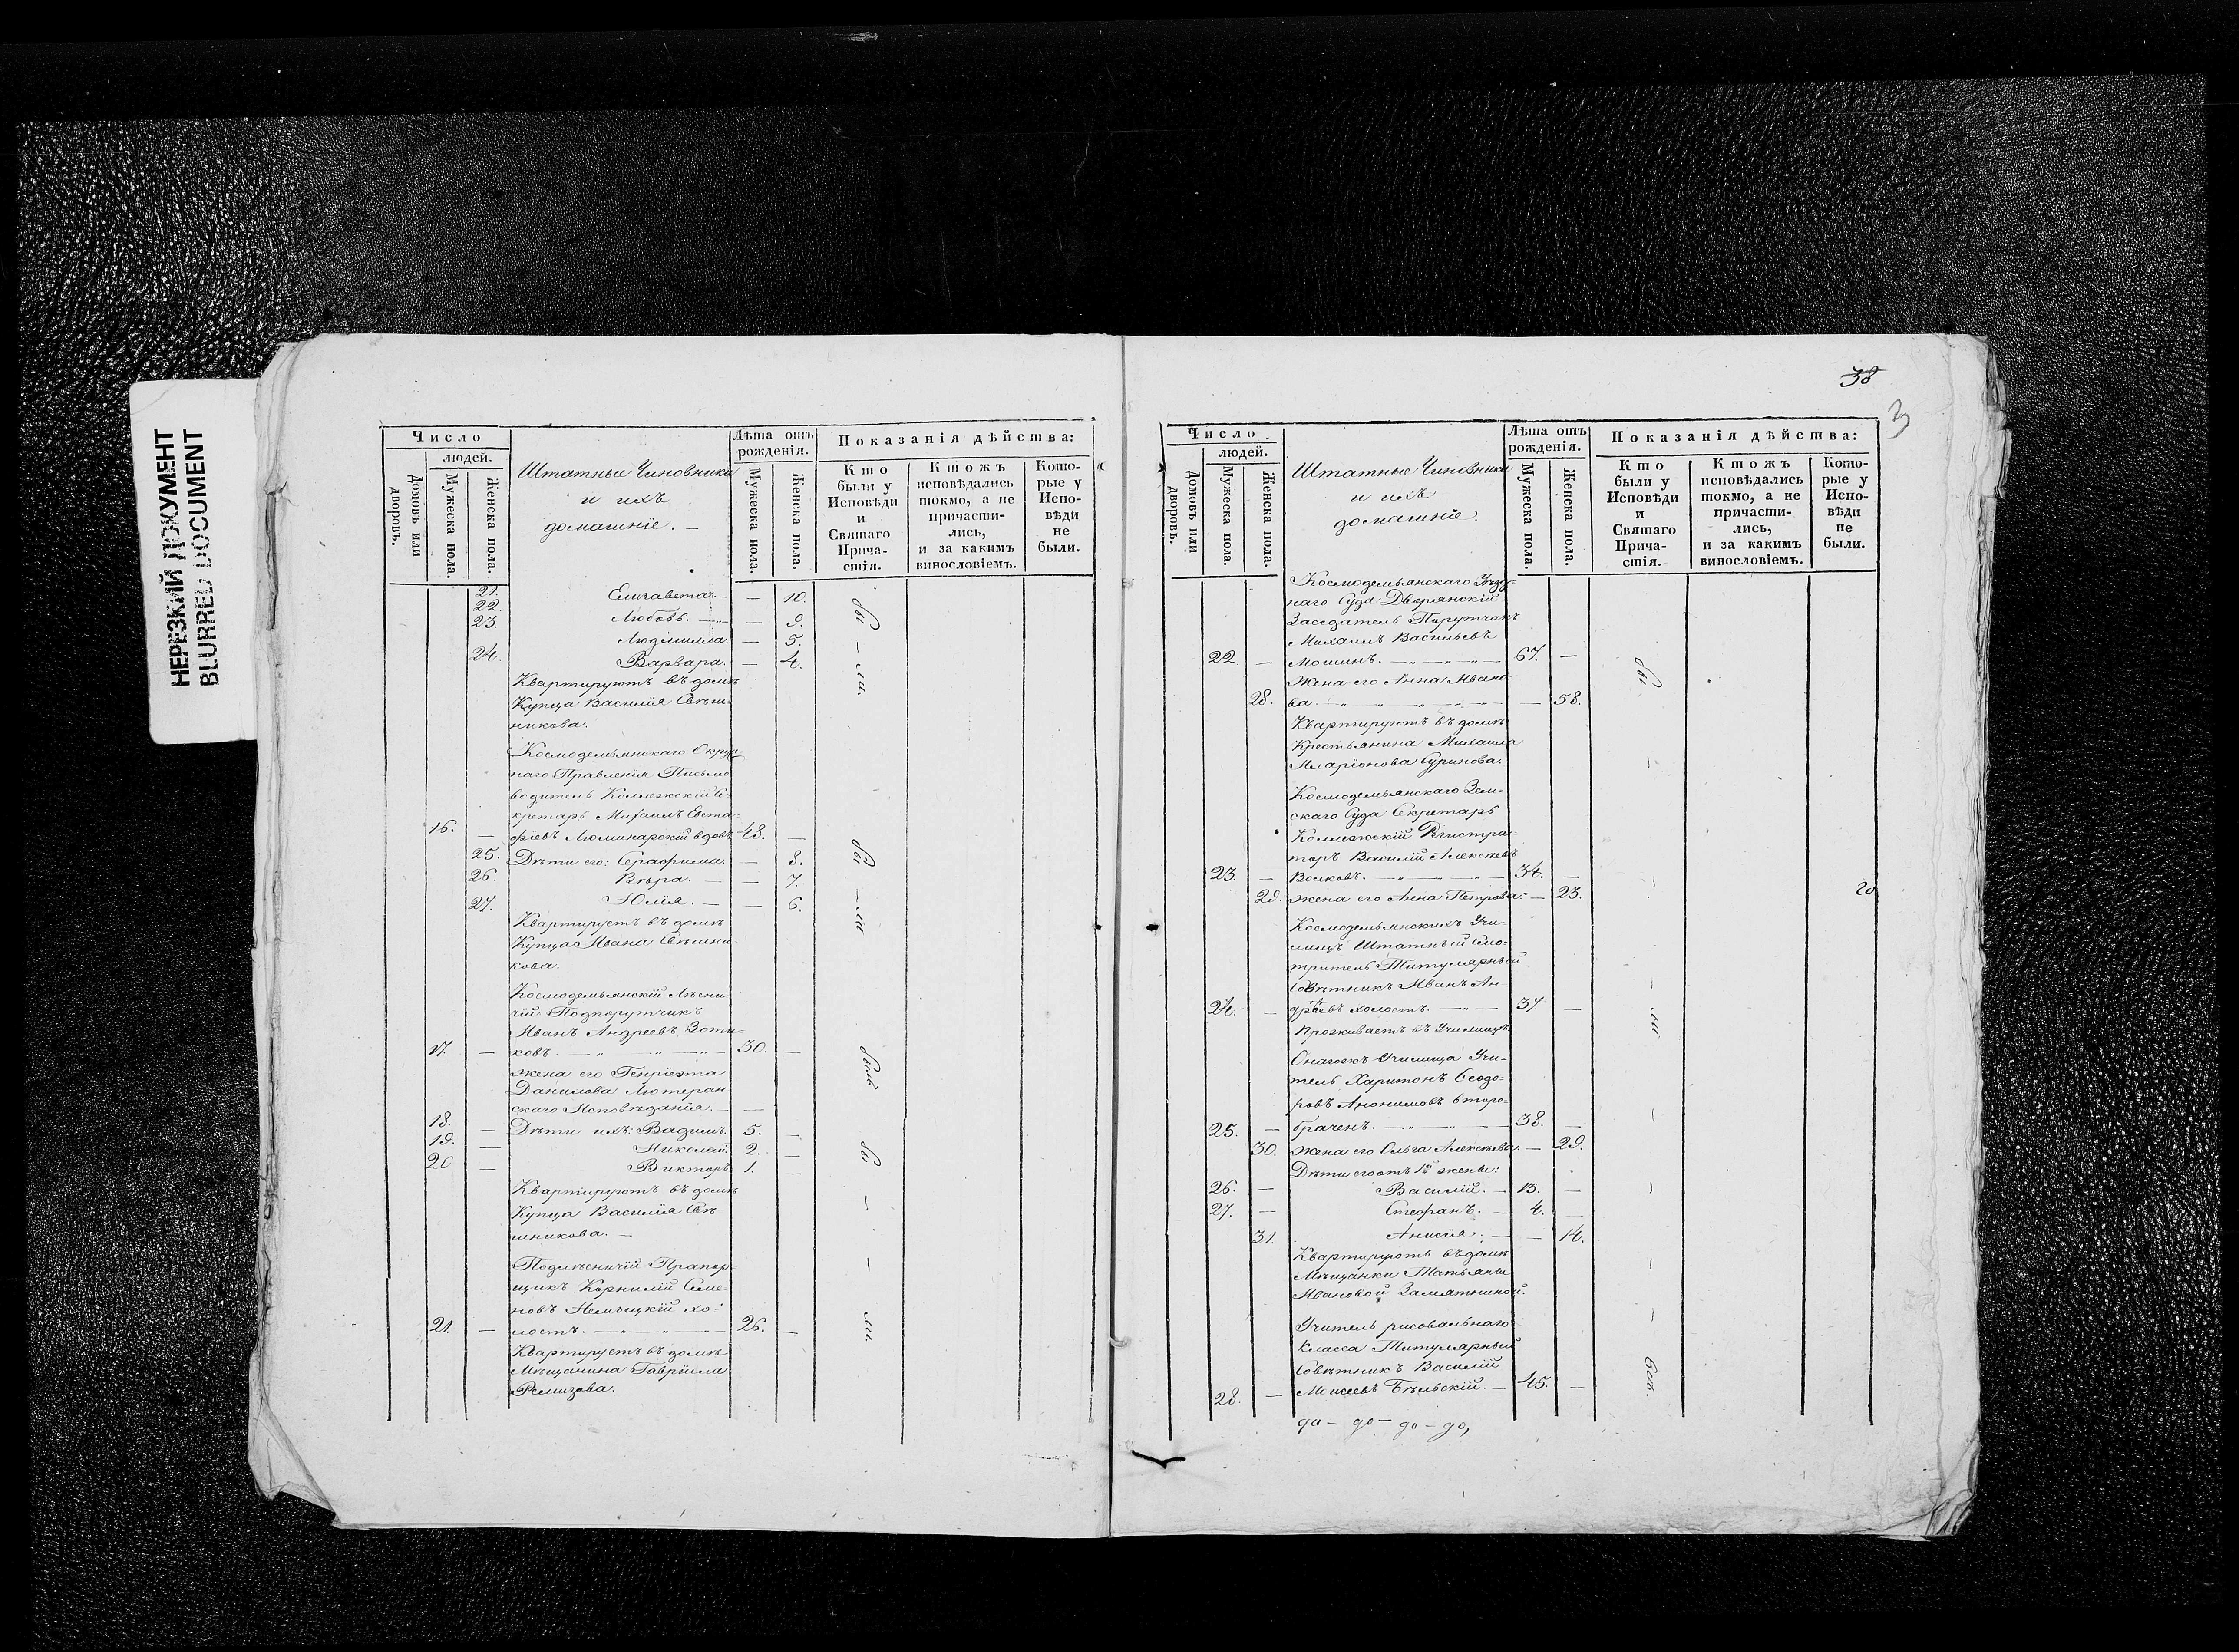 НЕРЕЗКИЙ ДОКУМЕНТ
BLURRED DOCUMENT
Число
людей.
Домовъ или дворовъ.
Мужеска пола.
Женска пола.
Штатные Чиновники
и ихъ
домашніе. —
Лѣта отъ рожденія.
Мужеска пола.
Женска пола.
Показанія дѣйства:
Кто были у Исповѣди и Святаго Причастія.
Ктожъ исповѣдались токмо, а не причастились, и за какимъ винословіемъ.
Которые у Исповѣди не были.
21. Елизавета — — 10.
22. Любовь. — — 9.
23. Людмилла. — 5.
24. Варвара. — 4.
бы — ли.
Квартируютъ въ домѣ
Купца Василія Свѣш-
никова.
Космодемьянскаго Окруж-
наго Правленія Письмо
водитель Коллежскій Се-
кретарь Михаилъ Евста-
16. — фіевъ Люминарскій вдовъ. 48. —
25. Дѣти его: Серафима. — 8.
26. Вѣра. — — 7.
27. Юлія. — — 6.
бы — ли
Квартируетъ въ домѣ
Купца Ивана Свѣшни-
кова.
Космодемьянскій Лѣсни-
чій Подпорутчикъ
Иванъ Андреевъ Зоти-
17. — ковъ. — „ — „ — „ — 30. —
жена его Генріэта
Данилова Лютеран
скаго Исповѣданія. — —
былъ
18. — Дѣти ихъ: Вадимъ. 5. —
19. — Николай. 2. —
20 — Викторъ. 1. —
бы — — ли.
Квартируютъ въ домѣ
Купца Василія Свѣ
шникова. —
Подлѣсничій Прапор-
щикъ Корнилій Семе-
новъ Немѣцкій хо-
21. — лостъ. — „ — „ — „ — 26. —
Квартируетъ въ домѣ
Мѣщанина Гавріила
Ремизова.
38
3
Число
людей.
Домовъ или дворовъ.
Мужеска пола.
Женска пола.
Штатные Чиновники
и ихъ
домашніе.
Лѣта отъ рожденія.
Мужеска пола.
Женска пола.
Показанія дѣйства:
Кто были у Исповѣди и Святаго Причастія.
Ктожъ исповѣдались токмо, а не причастились, и за какимъ винословіемъ.
Которые у Исповѣди не были.
Космодемьянскаго Уѣзд-
наго Суда Дворянскій
Засѣдатель Порутчикъ
Михаилъ Васильевъ
22. — Мошинъ. — „ — „ — „ — 67. —
жена его Анна Ивано-
28. ва. — „ — „ — „ — — 58.
бы
Квартируютъ въ домѣ
Крестьянина Михаила
Иларіонова Суринова.
Космодемьянскаго Зем-
скаго Суда Секретарь
Коллежскій Регистра-
торъ Василій Алексѣевъ
23. — Волковъ. — „ — „ — 34. —
29. жена его Анна Петрова. — — 23.
Космодемьянскихъ Учи-
лищъ Штатный Смо-
тритель Титулярный
Совѣтникъ Иванъ Ан-
24. — дреевъ холостъ. — „ — 37. —
ли
Проживаетъ въ Училищѣ.
Онагожъ Училища Учи-
тель Харитонъ Ѳеодо-
ровъ Анонимовъ второ-
25. — браченъ. — „ — „ — 38. —
30. жена его Ольга Алексѣева. — 29.
Дѣти его отъ 1й жены:
26. — Василій. — 13. —
27. — Стефанъ. — 4. —
31. Анисія. — — 14.
Квартируютъ въ домѣ
Мѣщанки Татьяны
Ивановой Замятниной.
Учитель рисовальнаго
класса Титулярный
Совѣтникъ Василій
28. — Моисеевъ Бѣльскій. — 45. —